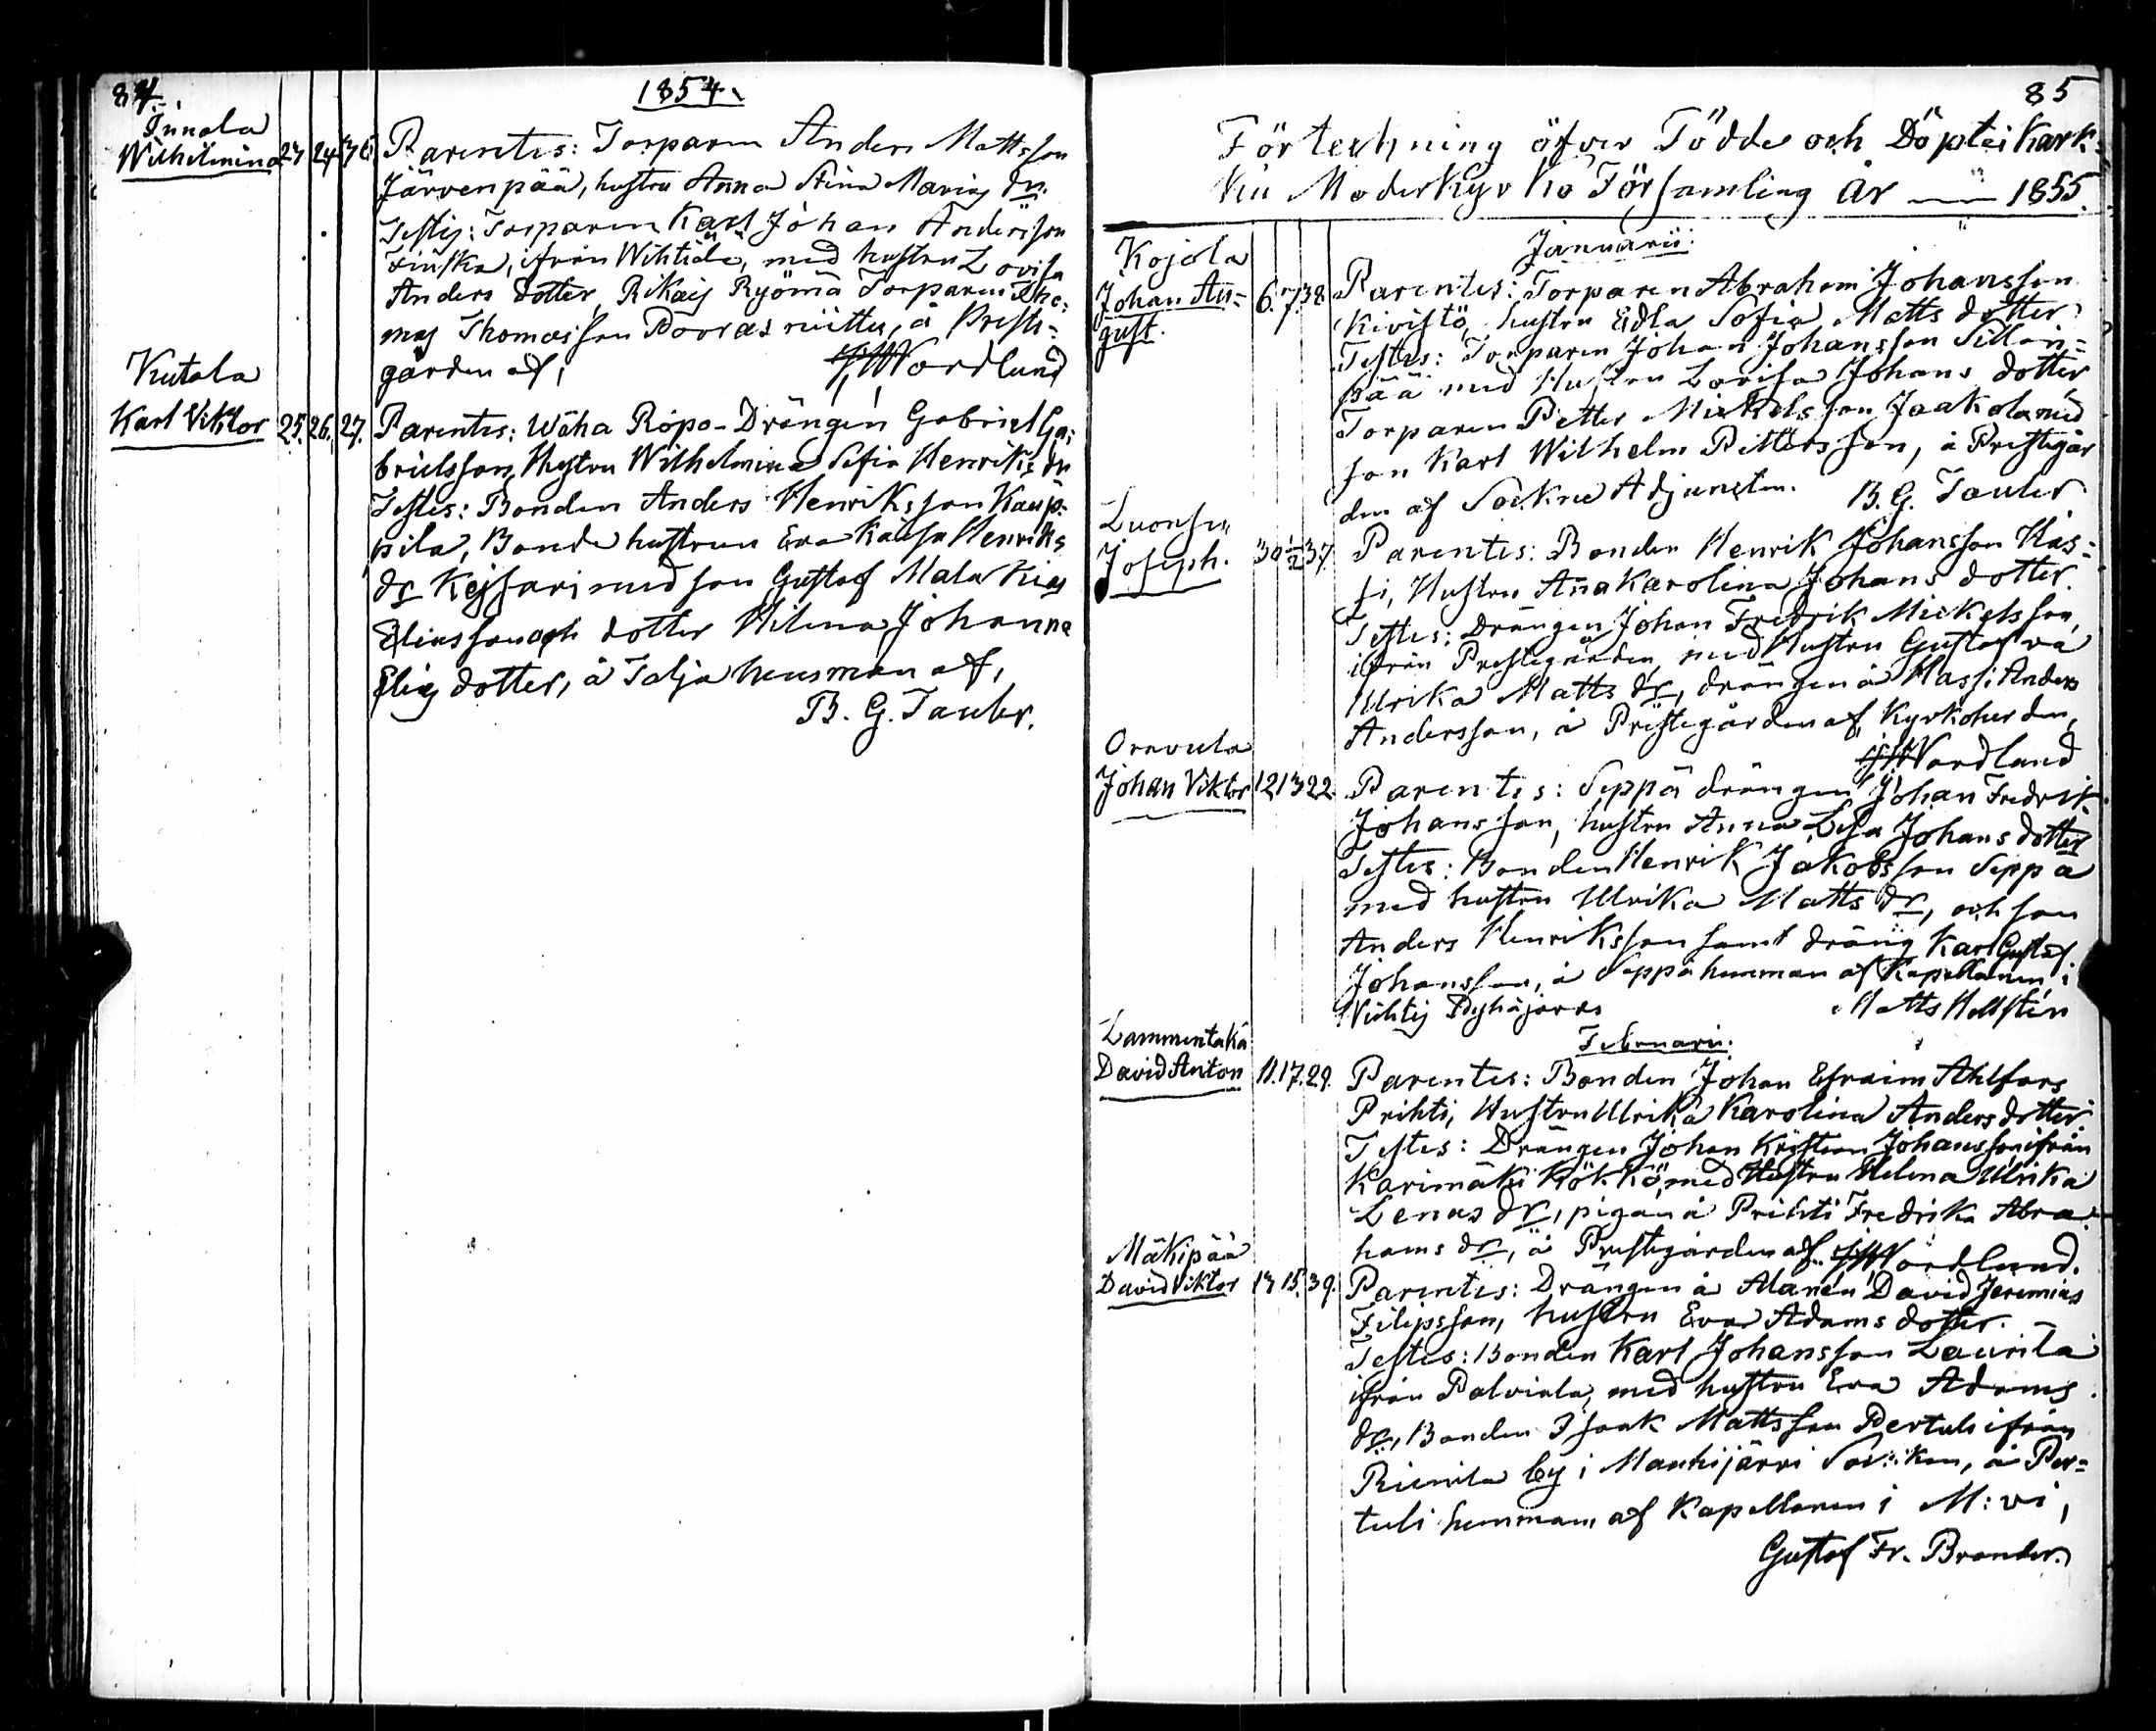 84.
1854.
Innala
Wilhelmina 23 24 36 Parentes: Torparen Anders Mattsson
Järvenpää, hustru Anna Stina Marias dr.
Testes: Torparen Karl Johan Andersson
Finska, ifrån Wihtiälä, med hustru Lovisa
Anders dotter, Rikais Ryömä Torparen Tho-
mas Thomasson Pooras niittu, å Preste-
gården af, Nordlund
Kutala
Karl Viktor 25. 26. 27. Parentes: Wäha Ripo-Drängen Gabriel Ga-
brielsson, Hustru Wilhelmina Sofia Henriks dr
Testes: Bonden Anders Henriksson Kaup-
pila, Bonde hustrun Eva Kaisa Henriks
dr Kejsari med son Gustaf Malakias
Eliasson och dotter Helena Johanna
Elias dotter, å Talja hemman af,
B. G. Tauler.
85
Förteckning öfver Födde och Döpte i Kark-
ku Moderkyrko Församling År 1855.
Januarii.
Kojola
Johan Au-
gust. 6. 7. 38. Parentes: Torparen Abraham Johansson
Kivistö, hustru Edla Sofia Matts dotter
Testes: Torparen Johan Johansson Sillan-
pää med Hustru Lovisa Johans dotter
Torparen Petter Mickelsson Jaakola med
son Karl Wilhelm Pettersson, å Prestegår
den af Sockne Adjuncten. B. G. Tauler
Luonsu
Joseph. 30 1/2 37. Parentes: Bonden Henrik Johansson Has-
si, Hustru Anna Karolina Johans dotter.
Testes: Drängen Johan Fredrik Mickelsson,
ifrån Prestegården, med Hustru Gustafva
Ulrika Matts dr, drängen å Hassi Anders
Andersson, å Prestegården af, Kyrkoherden,
Nordlund
Oravula
Johan Viktor 12 13 22. Parentes: Seppä drängen Johan Fredrik
Johansson, hustru Anna Lisa Johans dotter
Testes: Bonden Henrik Jakobsson Seppä
med hustru Ulrika Matts dr, och son
Anders Henriksson samt dräng Karl Gustaf
Johansson, å Seppä hemman af Kapellanen i
Wichtis Pyhäjärvi Matts Hellstén
Februarii.
Lammentaka
David Anton 11. 17. 29. Parentes: Bonden Johan Efraim Ahlfors
Prihti, Hustru Ulrika Karolina Anders dotter
Testes: Drängen Johan Kristian Johansson ifrån
Karimäki Kökkö, med Hustru Helena Ulrika
Lenas dr, pigan å Prihti Fredrika Abra
hams dr, å Prestegården af. Nordlund.
Mäkipää
David Viktor 13 15. 39. Parentes: Drängen å Alanen David Jeremias
Filipsson, hustru Eva Adams dotter.
Testes: Bonden Karl Johansson Laurila
ifrån Palviala, med hustru Eva Adams
dr, Bonden Isaak Mattsson Pertuli ifrån
Rienila by i Mouhijärvi Socken, å Per-
tuli hemman, af Kapellanen i M:vi,
Gustaf Fr. Brander.